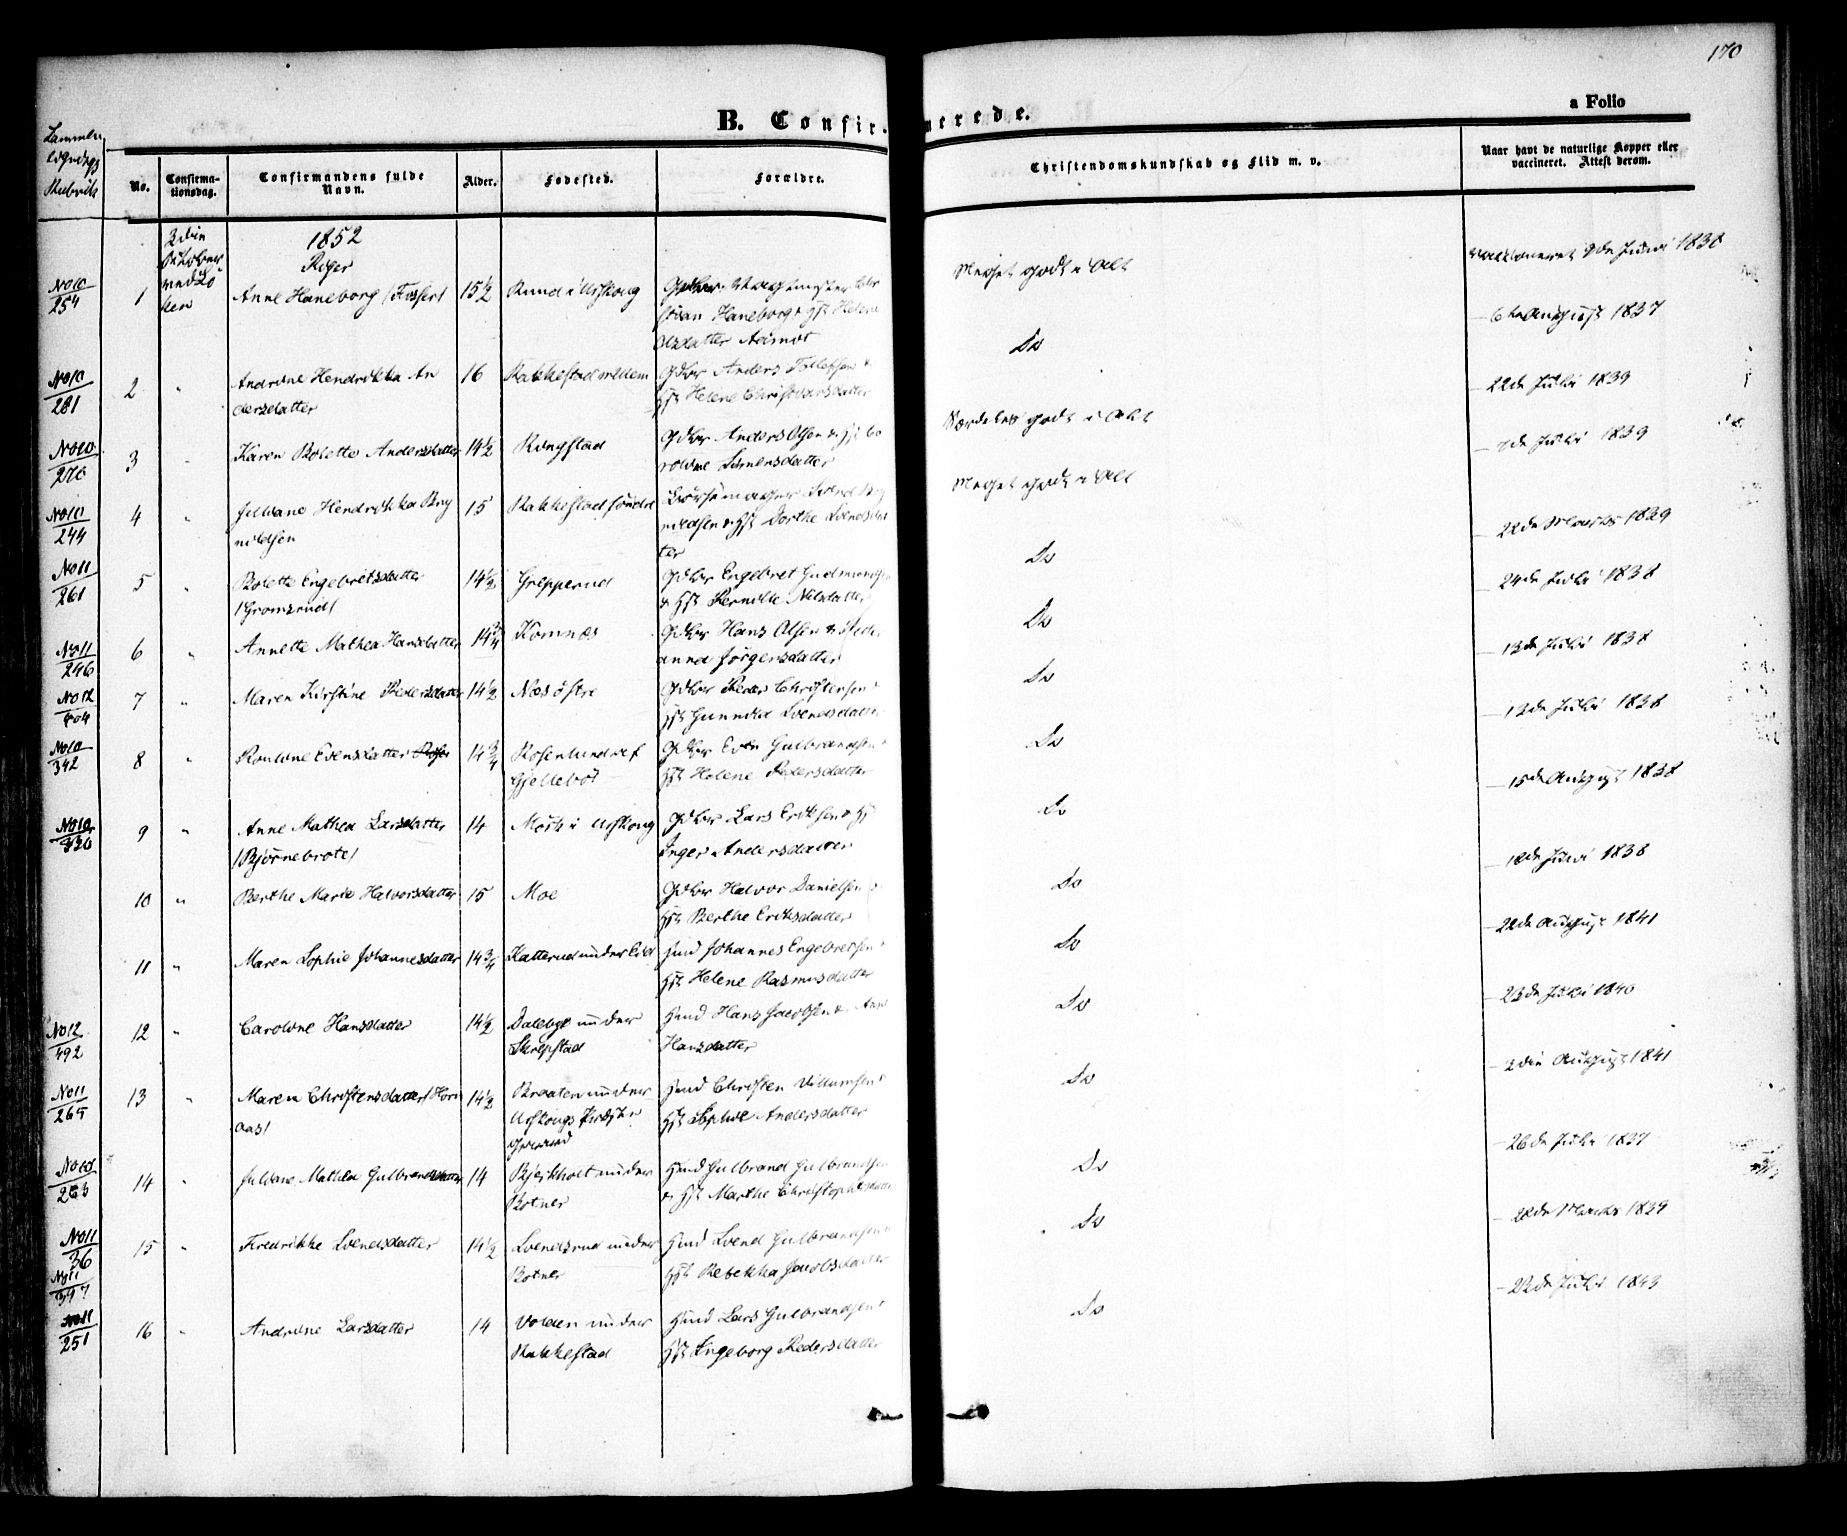 170
B. Confirmerede.
a Folio
No.
Confirmationsdag.
Confirmandens fulde Navn.
Alder.
Fødested.
Forældre.
Christendomskundskab og Flid m. v.
Naar havt de naturlige Kopper eller vaccineret. Attest derom.
1852
Piger
No 10
254
1
Anne Haneborg /Fosser/
15 1/2
Rund i Urskoug
stian Haneborg & Hst Helene
Olsdatter Aamot
Meget godt i Alt
vaccineret 9de Juni 1838
No 10
281
2
"
Andrine Hendrikka An
dersdatter
16
Rakkestad mellem
Gdbr Anders Tollefsen &
Hst Helene Christiansdatter
Do
6te August 1837
No 10
270
3
"
Karen Bolette Andersdatter
14 1/2
Ringstad
Gdbr Anders Olsen & Hst Ca
roline Simensdatter
Særdeles godt i Alt
22de Juli 1839
No 10
244
4
"
Juliane Hendrikka Bry
nildsen
15
Rakkestad søndre
nildsen & Hst Dorthe Svendsdat
ter
Meget godt i Alt
7de Juli 1839
No 11
261
5
"
Bolette Engebretsdatter
/Gromsrud/
14 1/2
Grepperud
Gdbr Engebret Gudmundsen
& Hst Pernille Nilsdatter
Do
22de Marts 1839
No 11
246
6
"
Annette Mathea Hansdatter
14 3/4
Komnæs
Gdbr Hans Olsen &
anna Jörgensdatter
Do
24de Juli 1838
No 12
7
"
Maren Kirstine Pedersdatter
14 1/2
Næs östre
Gdbr Peder Christensen &
Hst Gunnild Svendsdatter
Do
13de Juli 1838
No 10
342
8
"
Pouline Evensdatter
14 3/4
Rosenlund af
Gjelleböl
Gdbr Even Gulbrandsen &
Hst Helene Pedersdatter
Do
12de Juli 1838
No 10
9
"
Anne Mathea Larsdatter
/Bjørnebrote/
14
Mörk i Urskoug
Gdbr Lars Eriksen & Hst
Inger Andersdatter
Do
15de August 1838
10
"
Berthe Marie Halvorsdatter
15
Moe
Gdbr Halvor Danielsen &
Hst Berthe Eriksdatter
Do
18de Juni 1838
11
"
Maren Sophie Johannesdatter
14 3/4
Katterud under Eid
Hmd Johannes Engebretsen &
Hst Helene Rasmusdatter
Do
22de August 1841
No 12
492
12
"
Caroline Hansdatter
14 1/2
Dalebye under
Skrepstad
Hmd Hans Jacobsen & Anne
Hansdatter
Do
23de Juli 1840
No 11
265
13
"
Maren Christensdatter /Horn
aas/
14 1/2
Braaten under
Urskougs Præste
gaard
Hmd Christen Villumsen &
Hst Sophie Andersdatter
Do
2den August 1841
No 10
263
14
"
Juliane Mathea Gulbrandsdatter
14
Bjerkholt under
Botner
Hmd Gulbrand Gulbrandsen
& Hst Marthe Christophersdatter
Do
26de Juli 1837
No 11
36
No 11
347
15
"
Fredrikke Svendsdatter
14 1/2
Svendsrud under
Botner
Hmd Svend Gulbrandsen &
Hst Rebekka Jacobsdatter
Do
22de Marts 1839
No 11
251
16
"
Andrine Larsdatter
14
Volden under
Rakkestad
Hmd Lars Gulbrandsen &
Hst Ingeborg Pedersdatter
Do
22de Juli 1843